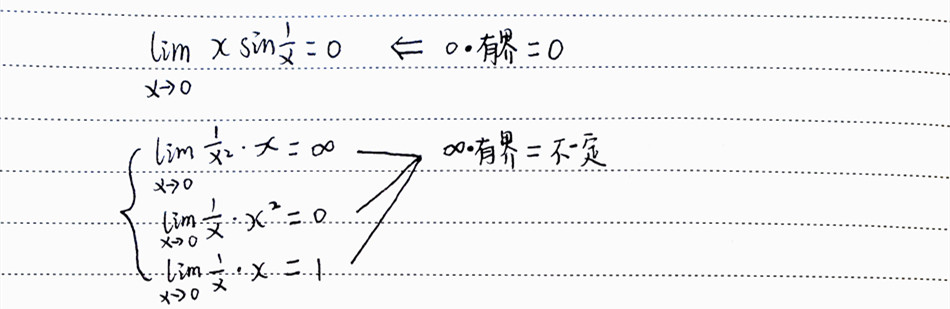 lim x→0 x sin 1/x = 0 ⇐ 0·有界=0
lim x→0 1/x² · x = ∞ ∞·有界=不一定
lim x→0 1/x · x² = 0
lim x→0 1/x · x = 1